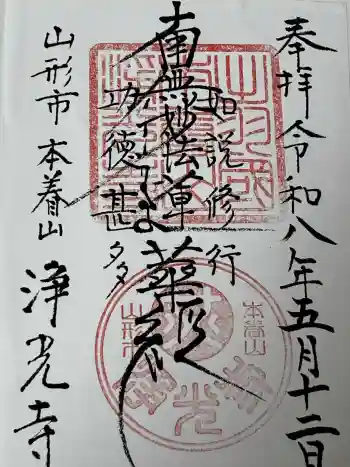 奉拝 令和八年五月十二日
如説修行
南無妙法蓮華経
功徳甚多
山形市 本着山
浄光寺
本着山
山形市
浄光寺